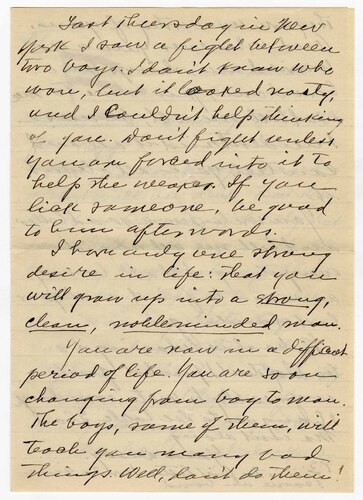 Last Thursday in New
York I saw a fight between
two boys. I don't know who
won, but it looked nasty,
and I couldn't help thinking
of you. Don't fight unless
you are forced into it to
help the weaker. If you
lick someone, be good
to him afterwords.
I have only one strong
desire in life: that you
will grow up into a strong,
clean, nobleminded man.
You are now in a difficult
period of life. You are soon
changing from boy to man.
The boys, some of them, will
teach you many bad
things. Well, don't do them!